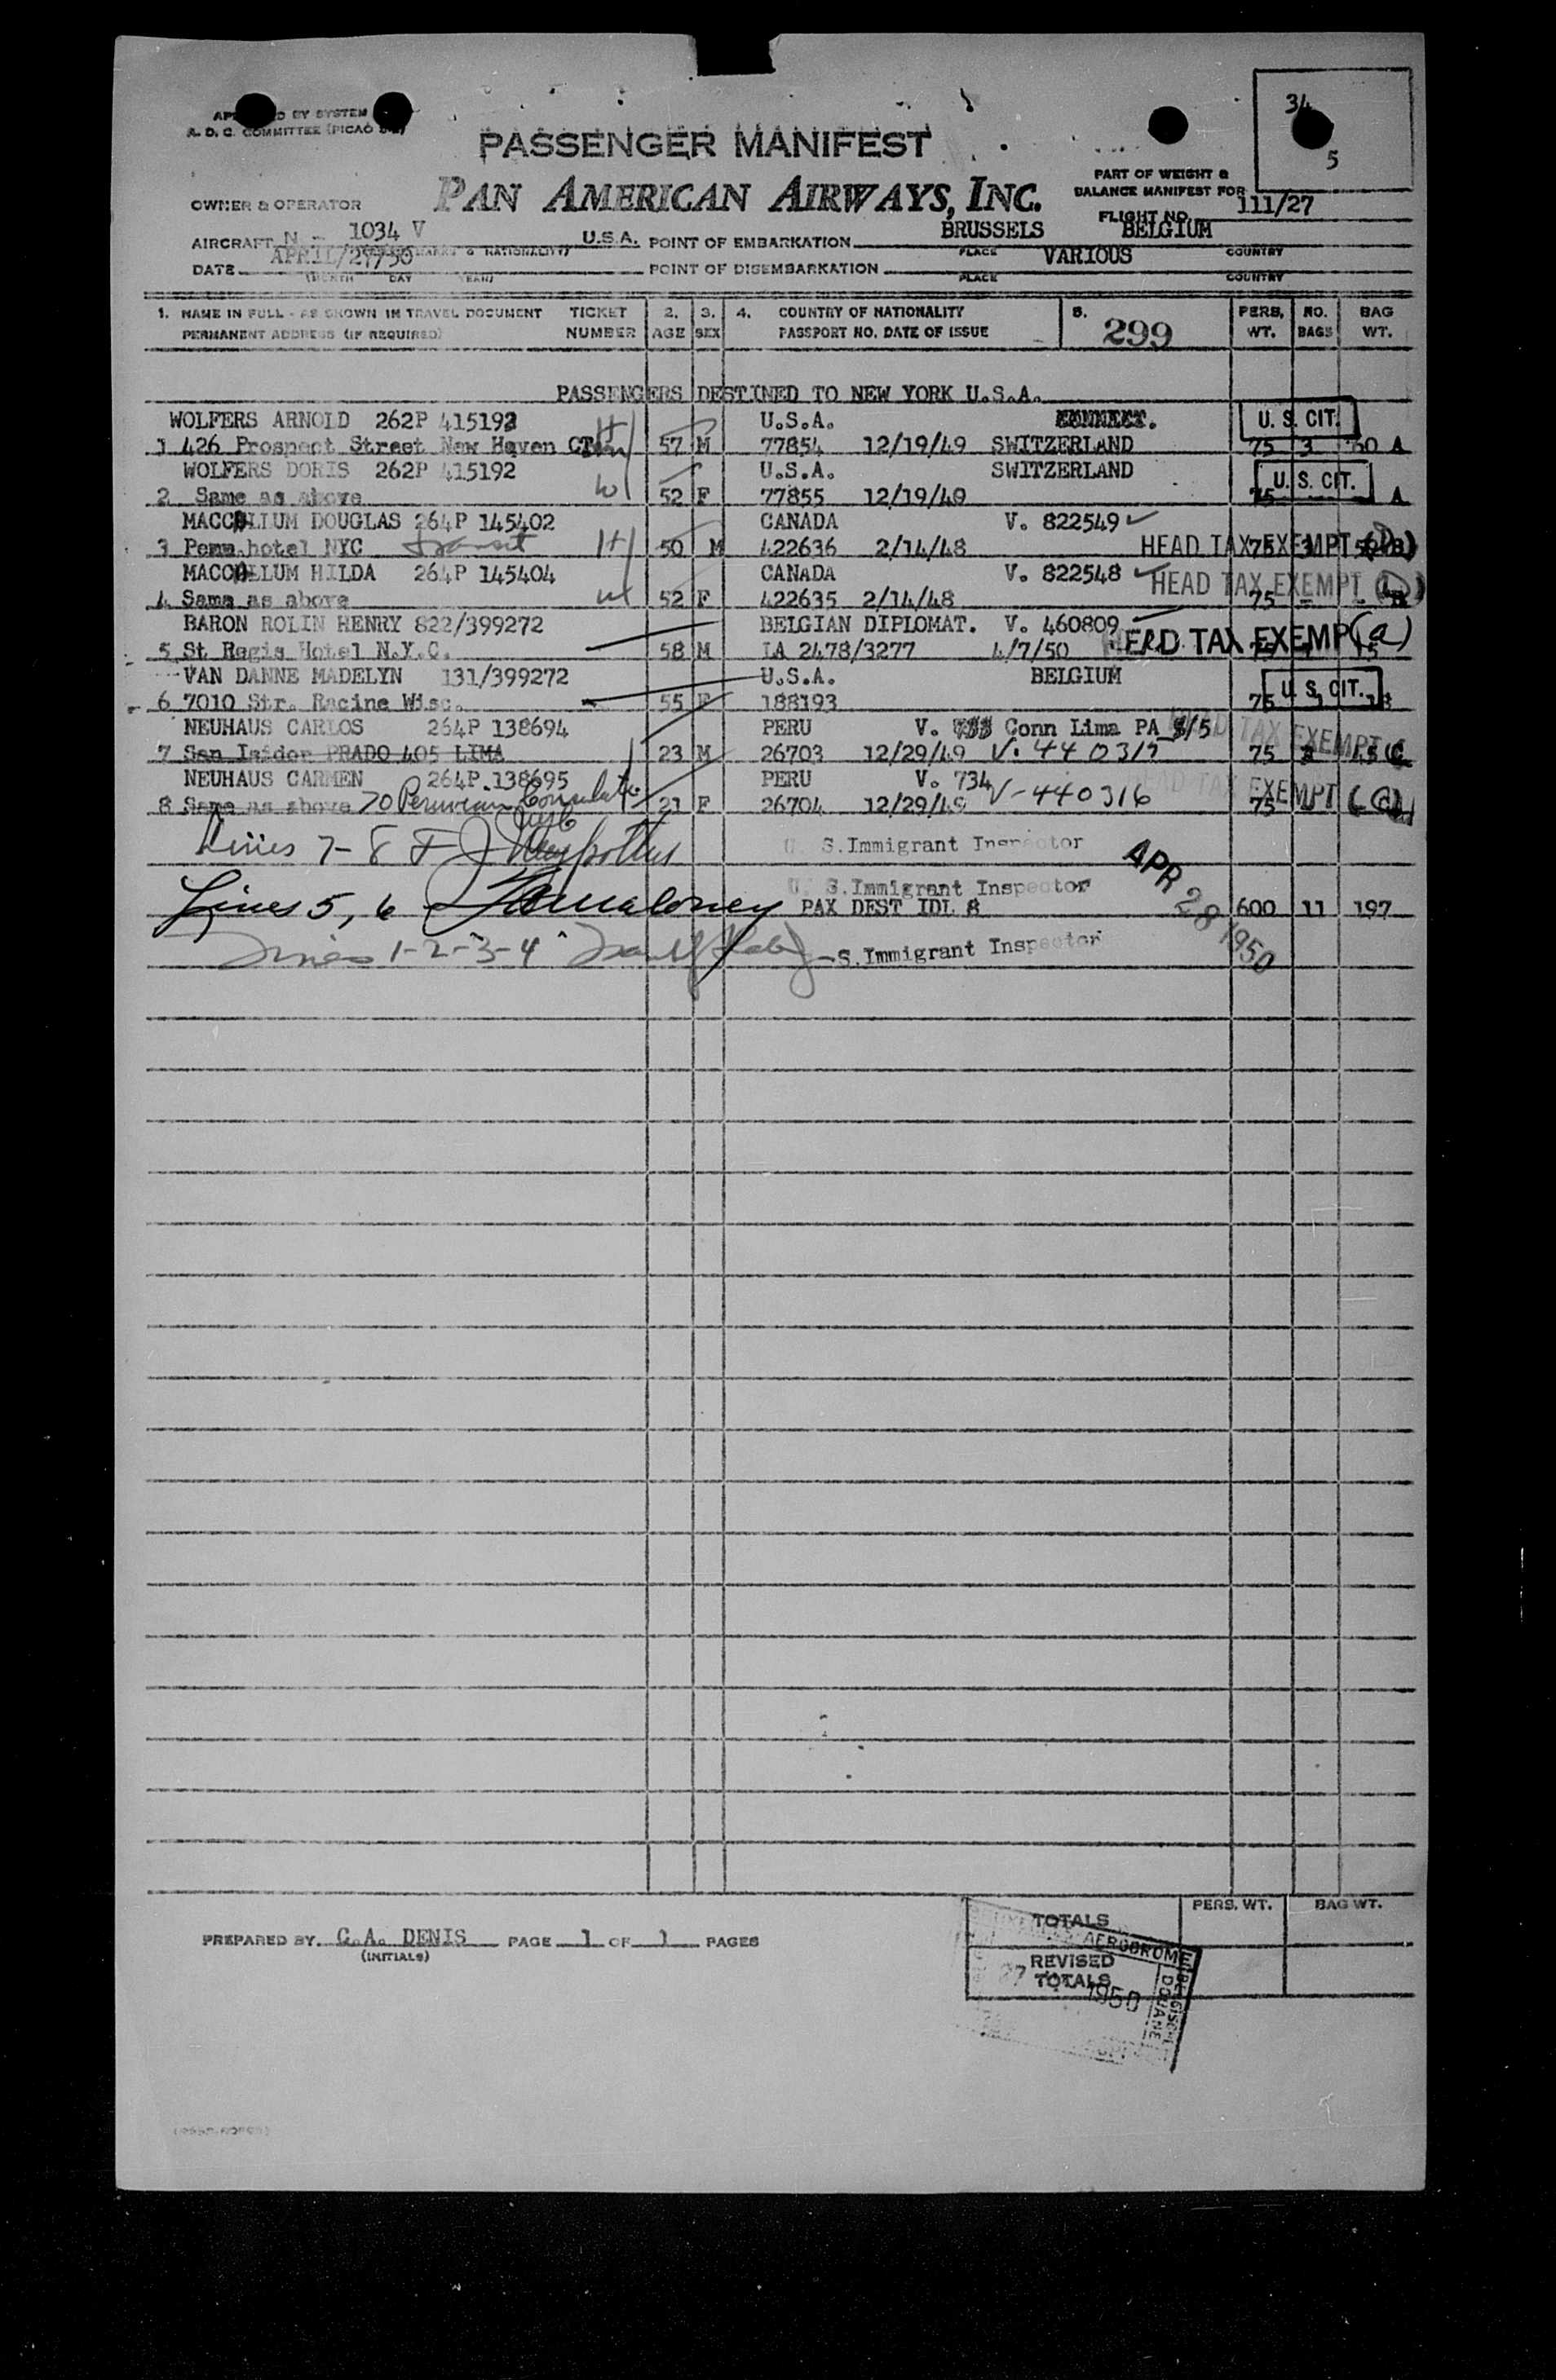 34
5
BY SYSTEM
A. D. C. COMMITTEE (PICAO
PASSENGER MANIFEST
PAN AMERICAN AIRWAYS, INC.
PART OF WEIGHT &
BALANCE MANIFEST FOR
FLIGHT NO. 111/27
OWNER & OPERATOR
AIRCRAFT N - 1034 V U.S.A. POINT OF EMBARKATION BRUSSELS BELGIUM
& NATIONALITY) PLACE COUNTRY
DATE APRIL/27/50 POINT OF DISEMBARKATION VARIOUS
(MONTH DAY YEAR) PLACE COUNTRY
1. NAME IN FULL - AS SHOWN IN TRAVEL DOCUMENT TICKET 2. 3. 4. COUNTRY OF NATIONALITY 5. 299 PERS. NO. BAG
PERMANENT ADDRESS (IF REQUIRED) NUMBER AGE SEX PASSPORT NO. DATE OF ISSUE WT. BAGS WT.
PASSENGERS DESTINED TO NEW YORK U.S.A.
WOLFERS ARNOLD 262P 415193 H U.S.A. U. S. CIT.
1 426 Prospect Street New Haven 57 M 77854 12/19/49 SWITZERLAND 75 3 60 A
WOLFERS DORIS 262P 415192 U.S.A. SWITZERLAND U. S. CIT.
2 Same as above W 52 F 77855 12/19/49 75 A
MACCOLLUM DOUGLAS 264P 145402 CANADA V. 822549
3 Penn.hotel NYC transit H 50 M 422636 2/14/48 HEAD TAX EXEMPT 75
MACCOLLUM HILDA 264P 145404 CANADA V. 822548 HEAD TAX EXEMPT
4 Same as above W 52 F 422635 2/14/48 75 -
BARON ROLIN HENRY 822/399272 BELGIAN DIPLOMAT. V. 460809
5 St Regis Hotel N.Y.C. 58 M LA 2478/3277 4/7/50 HEAD TAX EXEMP (a) 15
VAN DANNE MADELYN 131/399272 U.S.A. BELGIUM U. S. CIT.
6 7010 Str. Racine Wisc. 55 F 188193 75 1 18
NEUHAUS CARLOS 264P 138694 PERU V. Conn Lima PA 5/5 HEAD TAX EXEMPT
7 San Isidor PRADO 405 LIMA 23 M 26703 12/29/49 V. 440317 75
NEUHAUS CARMEN 264P 138695 PERU V. 734 HEAD TAX EXEMPT
8 Same as above 70 Peruvian Consulate NYC 21 F 26704 12/29/49 V-440316 75
Lines 7-8 U. S. Immigrant Inspector
APR 28 1950
Lines 5, 6 U. S. Immigrant Inspector
PAX DEST IDL 8 600 11 197
Lines 1-2-3-4 S. Immigrant Inspector
PERS. WT. BAG WT.
TOTALS
REVISED
TOTALS
AERODROME
27 1950
DOUANE
PREPARED BY. C.A. DENIS PAGE 1 OF 1 PAGES
(INITIALS)